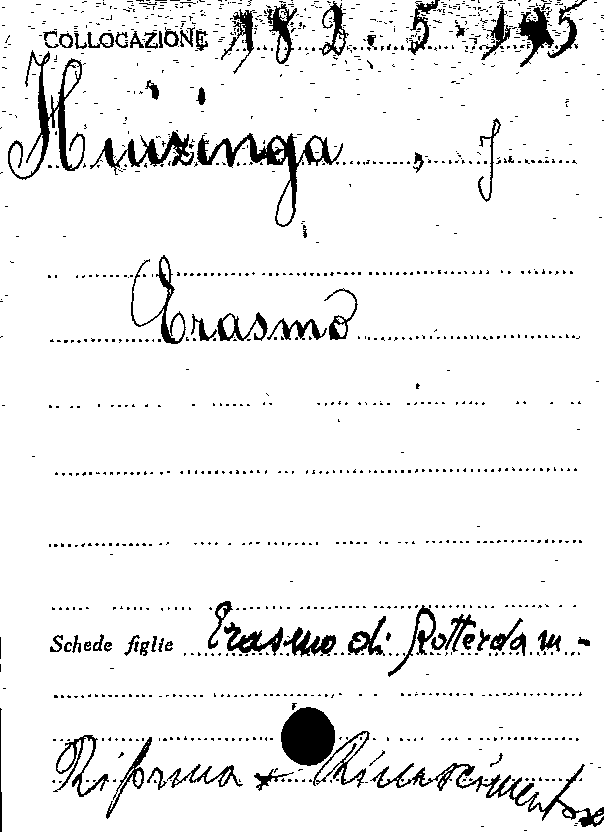 COLLOCAZIONE 182.5.195
Huizinga, J
Erasmo
Schede figlie Erasmo di Rotterdam -
Riforma Rinascimento